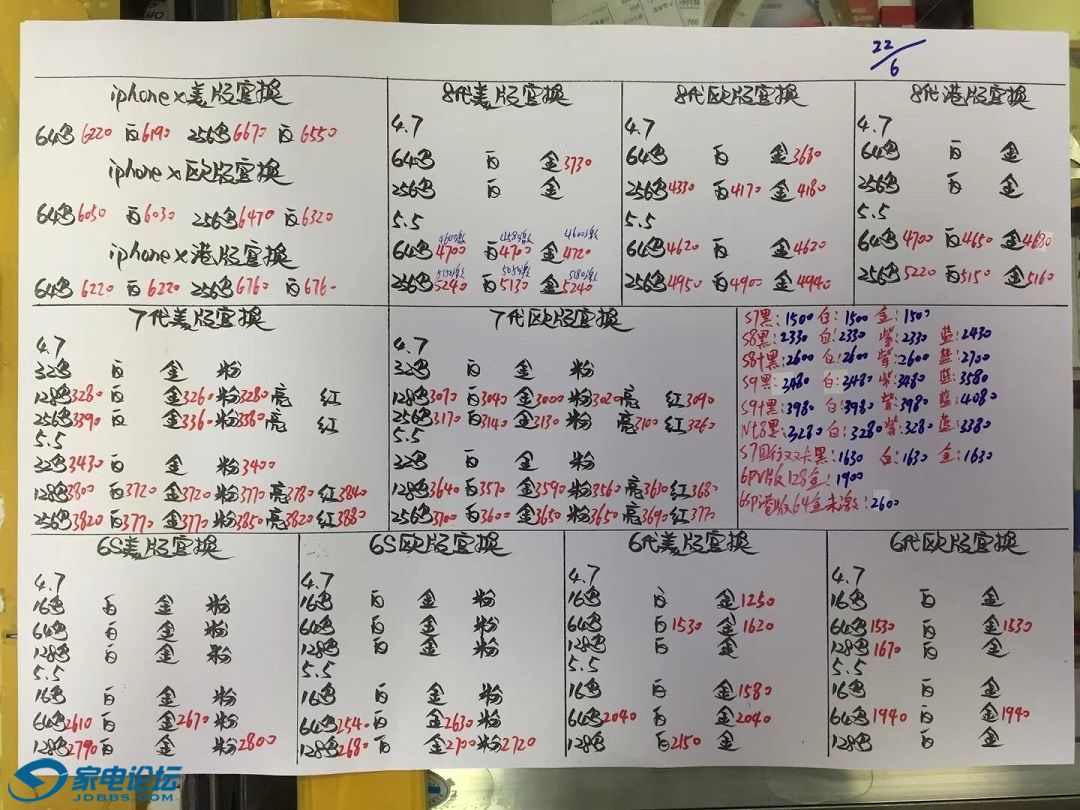 22/6
iphone x美版官换
64黑6220 白6190 256黑6670 白6550
iphone x欧版官换
64黑6050 白6030 256黑6470 白6320
iphone x港版官换
64黑6220 白6220 256黑676 白676
8代美版官换
4.7
64黑 白 金3730
256黑 白 金
5.5
64黑4700 白4700 金4720
256黑5240 白5130 金5240
8代欧版官换
4.7
64黑 白 金3680
256黑4330 白4170 金4180
5.5
64黑4620 白 金4620
256黑4950 白4900 金4940
8代港版官换
4.7
64黑 白 金
256黑 白 金
5.5
64黑4700 白4650 金4680
256黑5220 白5150 金5160
7代美版官换
4.7
32黑 白 金 粉
128黑3280 白 金3260 粉3280 亮 红
256黑3390 白 金3360 粉3380 亮 红
5.5
32黑3430 白 金 粉3400
128黑3800 白3720 金3720 粉3770 亮3780 红3840
256黑3820 白3770 金3770 粉3850 亮3820 红3880
7代欧版官换
4.7
32黑 白 金 粉
128黑3070 白3040 金3000 粉3020 亮 红3090
256黑3170 白3140 金3130 粉 亮3100 红3260
5.5
32黑 白 金 粉
128黑3640 白3570 金3590 粉3560 亮3630 红3680
256黑3700 白3600 金3650 粉3650 亮3690 红3770
S7黑:1500 白:1500 金:1500
S8黑:2330 白:2330 紫:2330 蓝:2430
S8+黑:2600 白:2600 紫:2600 蓝:2700
S9黑:3480 白:3480 紫:3480 蓝:3580
S9+黑:3980 白:3980 紫:3980 蓝:4080
Nt8黑:3280 白:3280 紫:3280 蓝:3380
S7国行双卡黑:1630 白:1630 金:1630
6P 版128金:1900
6SP港版64金未激:2600
6S美版官换
4.7
16黑 白 金 粉
64黑 白 金 粉
128黑 白 金 粉
5.5
16黑 白 金 粉
64黑2610 白 金2670 粉
128黑2790 白 金 粉2800
6S欧版官换
4.7
16黑 白 金 粉
64黑 白 金 粉
128黑 白 金 粉
5.5
16黑 白 金 粉
64黑2540 白 金2630 粉
128黑2680 白 金2700 粉2720
6代美版官换
4.7
16黑 白 金1250
64黑 白1530 金1620
128黑 白 金
5.5
16黑 白 金1580
64黑2040 白 金2040
128黑 白2150 金
6代欧版官换
4.7
16黑 白 金
64黑1530 白 金1530
128黑1670 白 金
5.5
16黑 白 金
64黑1940 白 金1940
128黑 白 金
家电论坛
JDBBS.COM